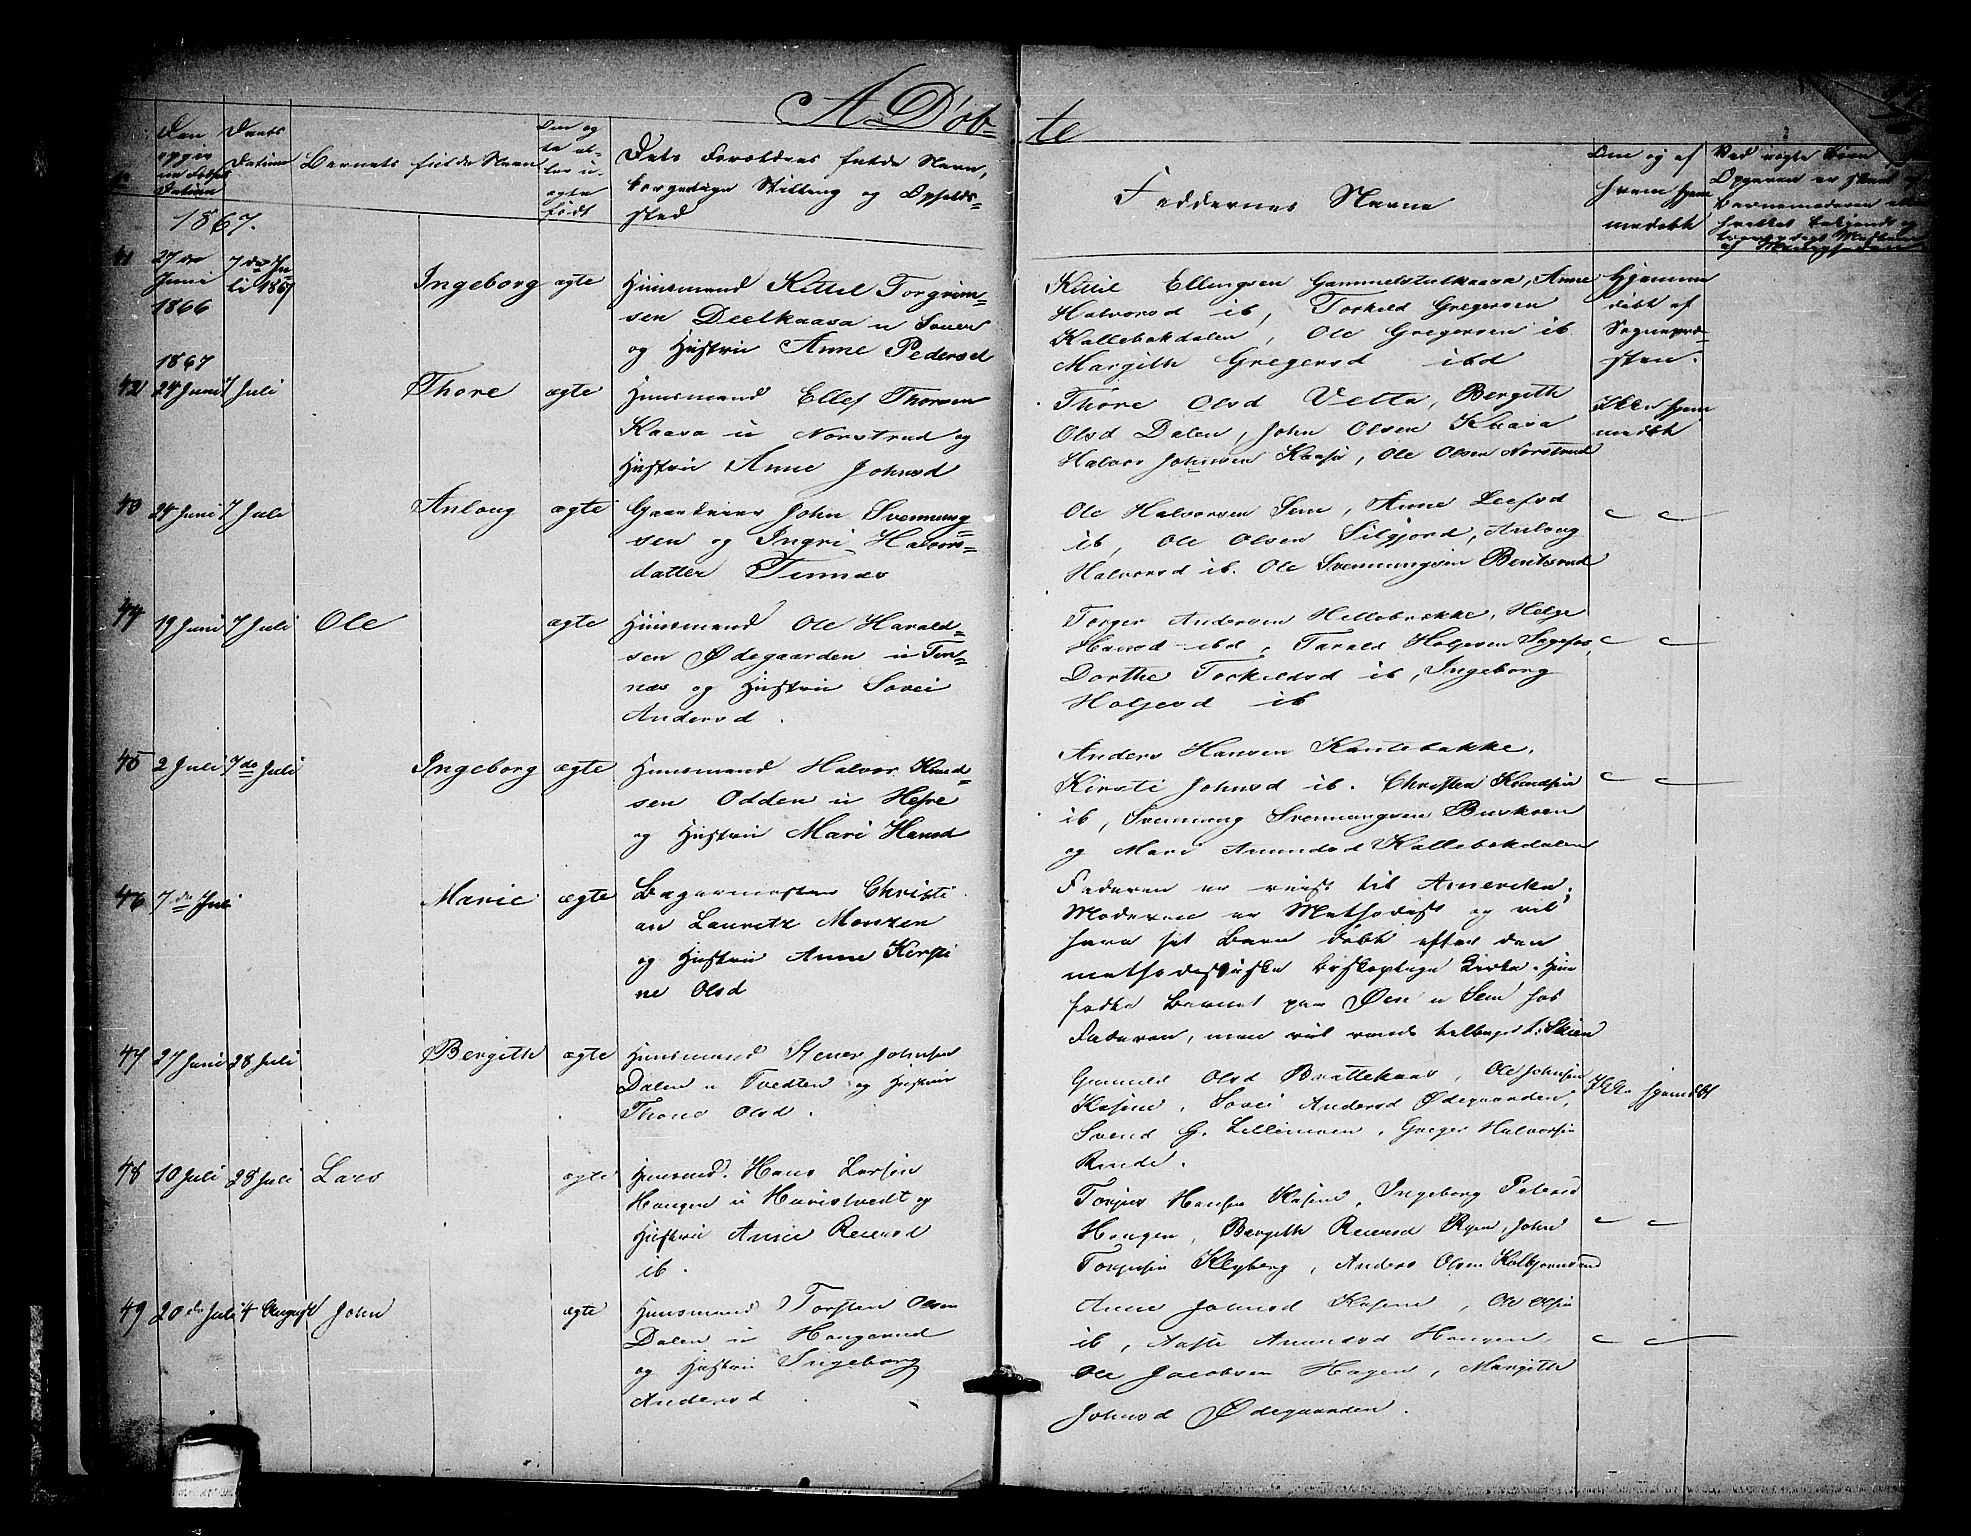 A. Døb-
te
Den opgivne Fødsels Datum
Daabs Datum
Barnets fulde Navn
Om ægte eller uægte født
Dets Forældres fulde Navn, borgerlige Stilling og Opholdssted
Faddernes Navne
Om og af hvem hjemmedøbt
1867.
41 27de Juni 1866 7de Juli 1867 Ingeborg ægte Huusmand Kittil Torgrim-
sen Deelkaasa u Sauer
og Hustru Anne Pedersd
Kittil Ellingsen Gammelstulkaasa, Anne
Halvorsd ib, Torkild Gregersen
Kallebækdalen, Ole Gregersen ib
Margith Gregersd ibd
Hjemme
døbt af
Sognepræ-
sten.
1867
42 24 Juni 7 Juli Thore ægte Huusmand Ellef Thorsen
Kaasa u Norstrud og
Hustru Anne Johnsd
Thore Olsd Velta, Bergith
Olsd Dalen, John Olsen Kaasa
Halvor Johnsen Kaasa, Ole Olsen Norstrud
Ikke hjem
medøbt
43 24 Juni 7 Juli Anlaug ægte Gaardeier John Svennung-
sen og Ingri Halvors-
datter Tinnæs
Ole Halvorsen Sem, Anne Leefsd
ib, Ole Olsen Silgjord, Anlaug
Halvorsd ib. Ole Svennungsen Bentsrud
44 19 Juni 7 Juli Ole ægte Huusmand Ole Harald-
sen Ødegaarden u Tin-
næs og Hustru Sovei
Andersd.
Torger Andersen Hellebrekke, Helge
Hansd ibd, Tarald Holjesen
Dorthe Torkildsd ib, Ingeborg
Holjesd ib
45 2 Juli 7de Juli Ingeborg ægte Huusmand Halvor Knud-
sen Odden u Hefre
og Hustru Mari Hansd
Anders Hansen Kontebakke,
Kirsti Johnsd ib. Christen Knudsen
ib, Svennung Svennungsen Buskven
og Mari Amundsd Kallebækdalen
46 7de Juli Marie ægte Bagermester Christi
an Lauritz Monsen
og Hustru Anne Kirsti
ne Olsd
Faderen er reist til Amerika.
Moderen er Methodist og vil
have sit Barn døbt efter den
methodistiske biskoplige Kirke. Hun
fødte Barnet paa Øen u Sem hos
Faderen, men vil reise tilbage t. Skien
47 27 Juni 28 Juli Bergith ægte Huusmand Stener Johnsen
Dalen u Tvedten og Hustru
Thone Olsd.
Gunild Olsd Brattekaas, Ole Johnsen
Kasene, Sovei Andersd Ødegaarden,
Svend G. Lillimoen, Greger Halvorsen
Rinde.
Ikke hjemdbt
48 10 Juli 28 Juli Lars ægte Huusmd. Hans Larsen
Haugen u Haristvedt og
Hustru Anne Reiersd
ib.
Torjus Hansen Kasene, Ingeborg Petersd
Haugen, Bergith Reiersd Ryen, John
Torjusen Klyberg, Anders Olsen Kolbjørnsrud
49 20de Juli 4 August John ægte Huusmand Torsten Olsen
Dalen u Haugerud
og Hustru Ingeborg
Andersd.
Anne Johnsd Kasene, Ole Olsen
ib, Aaste Amundsd Haugen,
Ole Jacobsen Hagen, Margith
Johnsd Ødegaarden.